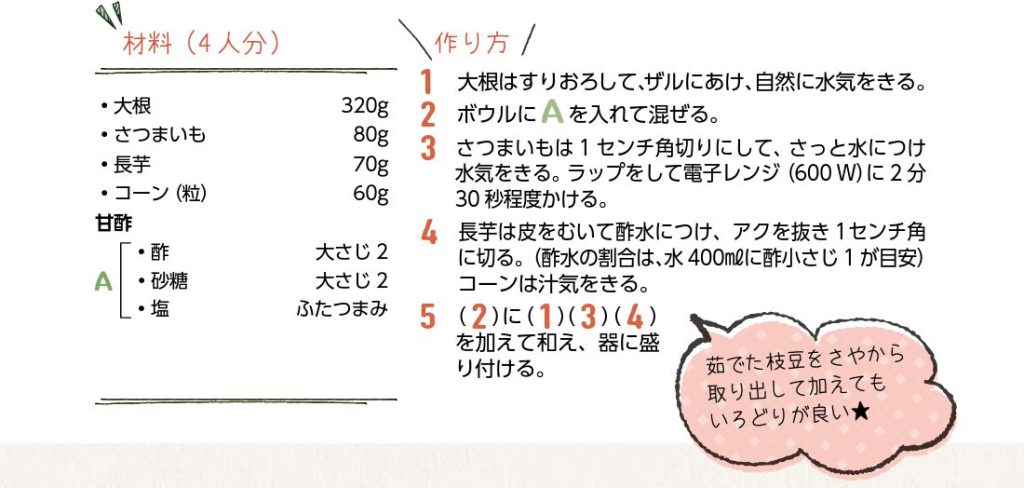 材料（4人分）
・大根 320g
・さつまいも 80g
・長芋 70g
・コーン（粒） 60g
甘酢
A
・酢 大さじ2
・砂糖 大さじ2
・塩 ふたつまみ
作り方
1 大根はすりおろして、ザルにあけ、自然に水気をきる。
2 ボウルに A を入れて混ぜる。
3 さつまいもは1センチ角切りにして、さっと水につけ
水気をきる。ラップをして電子レンジ（600W）に2分
30秒程度かける。
4 長芋は皮をむいて酢水につけ、アクを抜き1センチ角
に切る。（酢水の割合は、水400㎖に酢小さじ1が目安）
コーンは汁気をきる。
5 (2)に(1)(3)(4)
を加えて和え、器に盛
り付ける。
茹でた枝豆をさやから
取り出して加えても
いろどりが良い★